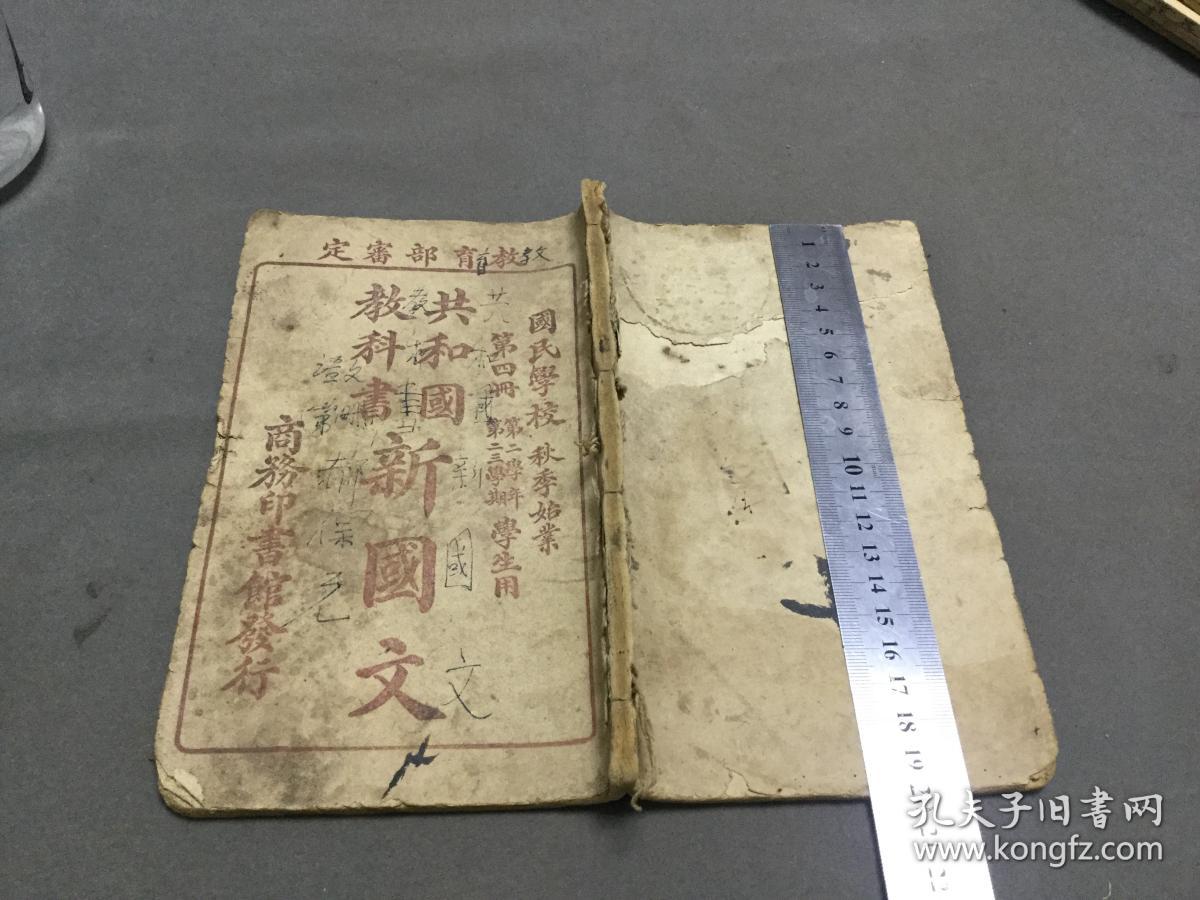 教育部審定
國民學校 秋季始業
第四冊 第二學年 第二三學期 學生用
共和國
教科書
新國文
商務印書館發行
教育
共
國
文
1 2 3 4 5 6 7 8 9 10 11 12 13 14 15 16 17 18 19
孔夫子旧书网
www.kongfz.com